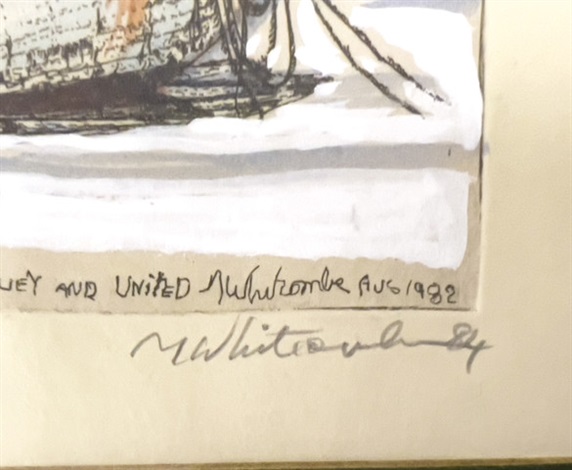 AND UNITED Whitcombe AUG 1982
Whitcombe 84